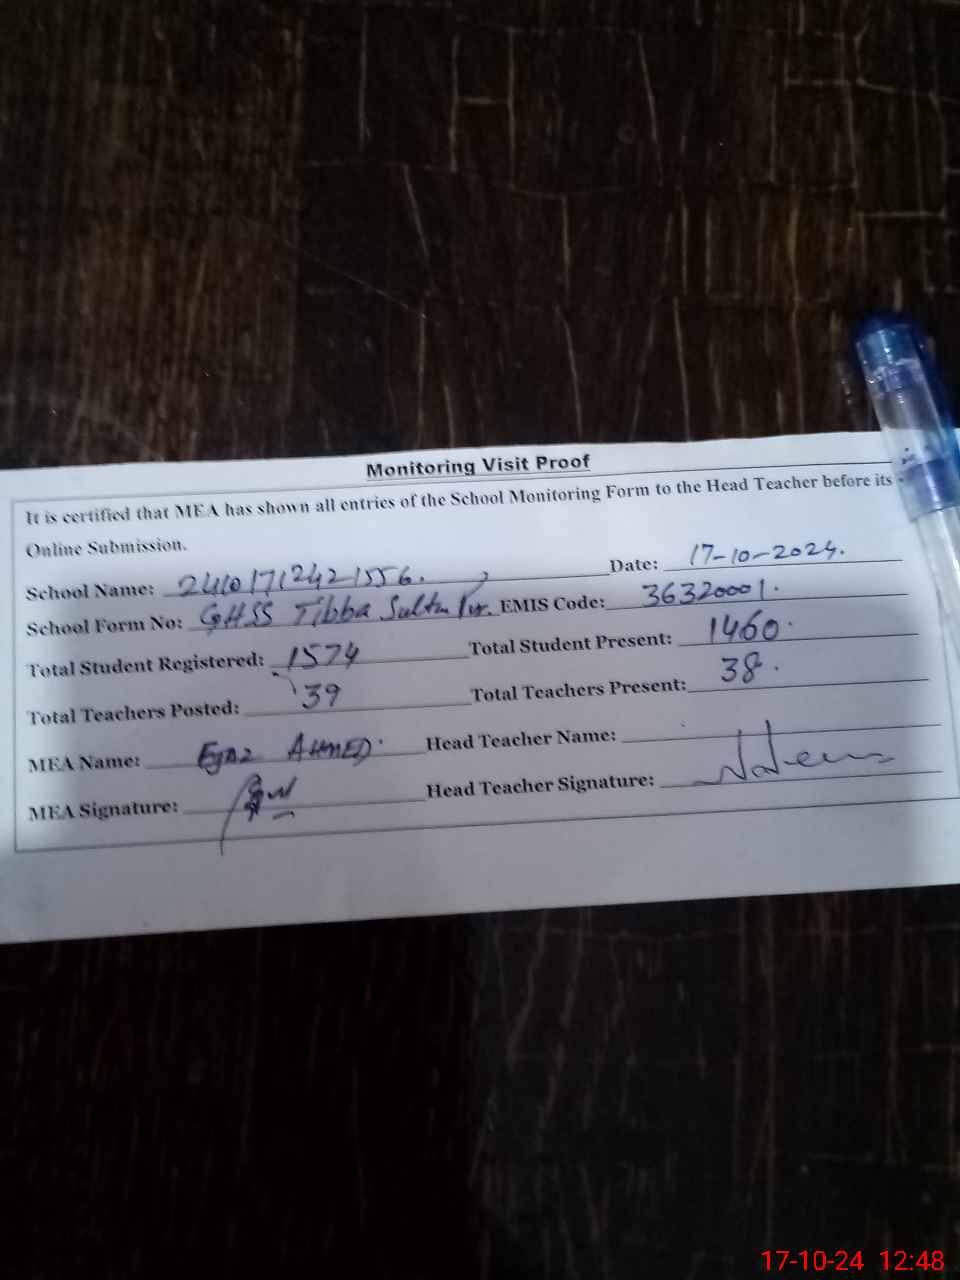 Monitoring Visit Proof
It is certified that MEA has shown all entries of the School Monitoring Form to the Head Teacher before its
Online Submission.
School Name: 24101712421556. Date: 17-10-2024.
School Form No: GHSS Tibba Sultan Pur. EMIS Code: 36320001.
Total Student Registered: 1574 Total Student Present: 1460
Total Teachers Posted: 39 Total Teachers Present: 38.
MEA Name: EJAZ AHMED. Head Teacher Name:
MEA Signature: Head Teacher Signature:
17-10-24 12:48